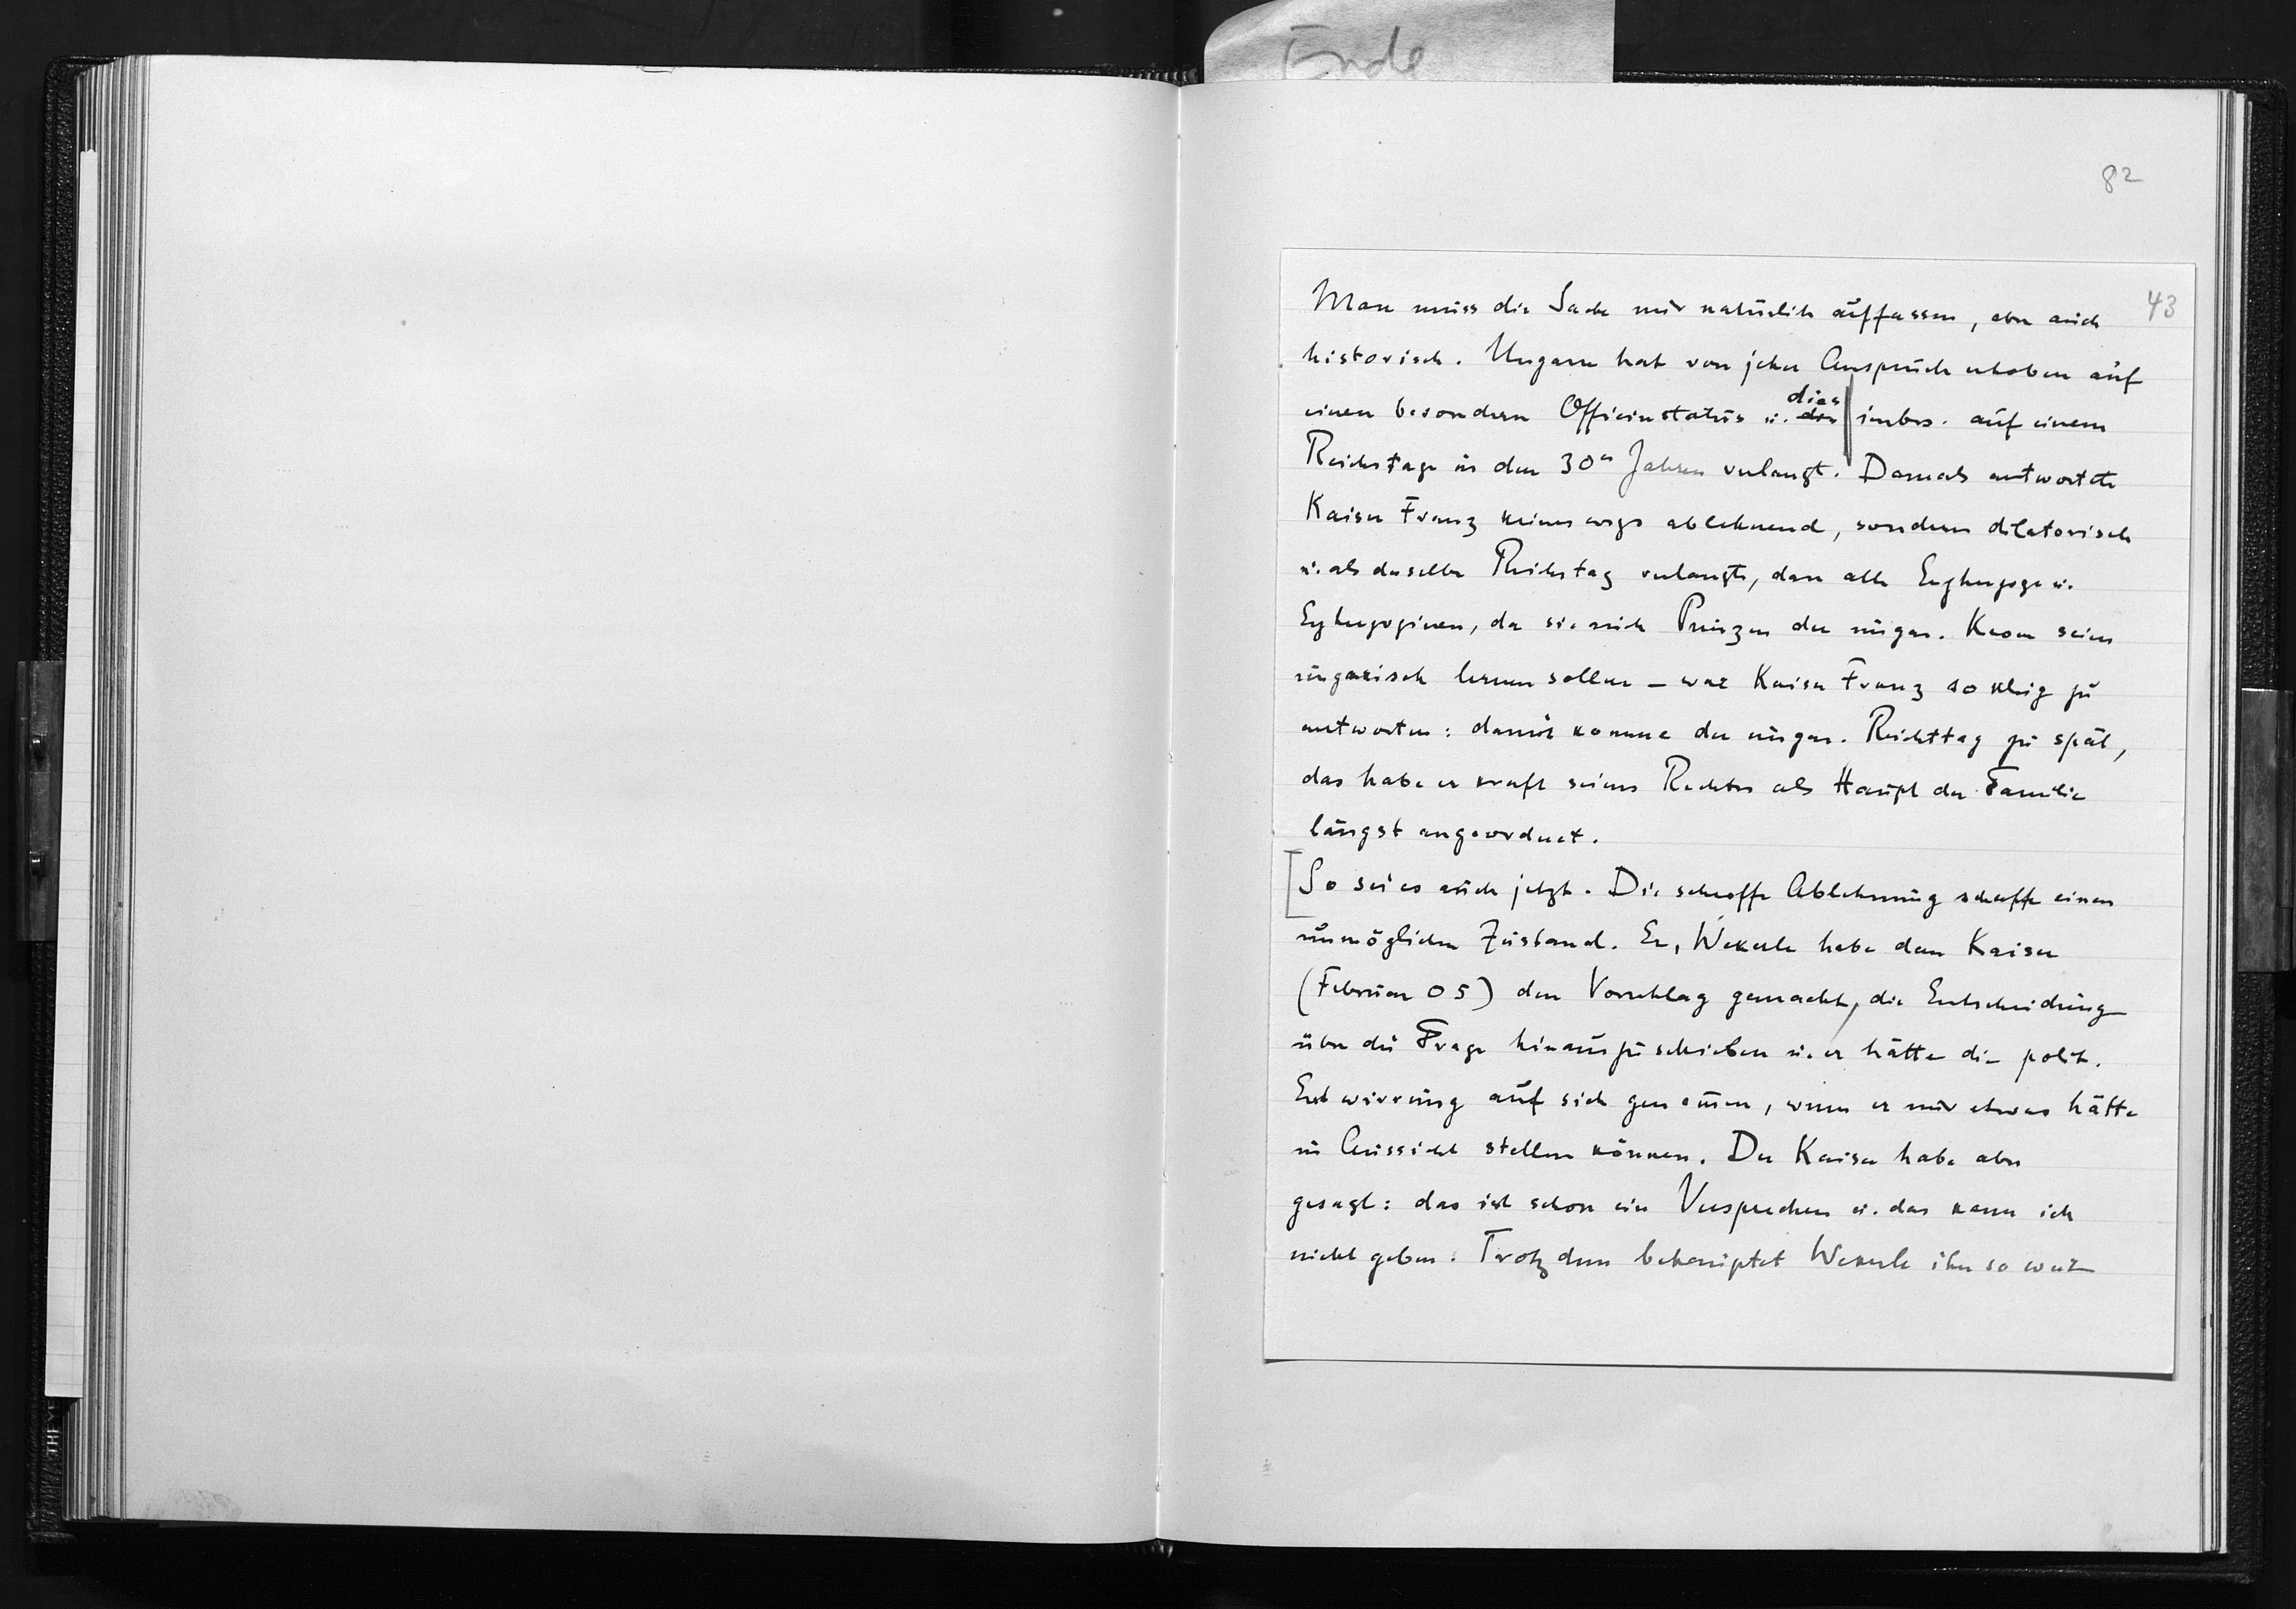 Ende
82
43
Man muss die Sache nur natürlich auffassen, aber auch
historisch. Ungarn hat von jeher Anspruch erhoben auf
einen besondern Officierstatus u. den dies insbes. auf einem
Reichstage in den 30er Jahren verlangt. Damals antwortete
Kaiser Franz keineswegs ablehnend, sondern dilatorisch
u. als derselbe Reichstag verlangte, dass alle Erzherzoge u.
Erzherzoginen, da sie auch Prinzen der ungar. Krone seien
ungarisch lernen sollen – war Kaiser Franz so klug zu
antworten: damit komme der ungar. Reichttag zu spät,
das habe er kraft seines Rechtes als Haupt der Familie
längst angeordnet.
[So sei es auch jetzt. Die schroffe Ablehnung schaffe einen
unmöglichen Zustand. Er, Wekerle habe dem Kaiser
(Februar 05) den Vorschlag gemacht, die Entscheidung
über die Frage hinauszuschieben u. er hätte die polit.
Entwirrung auf sich genommen, wenn er nur etwas hätte
in Aussicht stellen können. Der Kaiser habe aber
gesagt: das ist schon ein Versprechen u. das kann ich
nicht geben. Trotzdem behauptet Wekerle ihn so weit